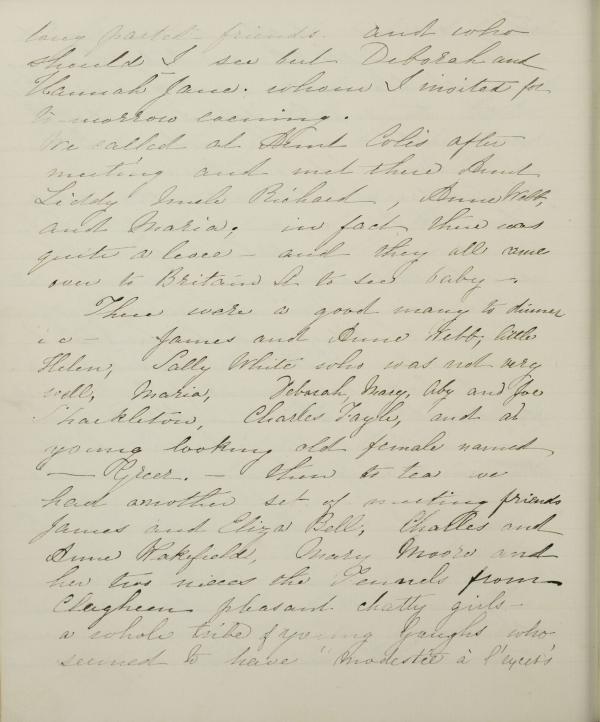 long parted friends. and who
should I see but Deborah and
Hannah Jane. whom I invited for
to-morrow evening.
We called at Aunt Colis after
meeting and met there Aunt
Liddy Uncle Richard, Anne Webb,
and Maria; in fact there was
quite a levee - and they all came
over to Britain St to see baby -.
There were a good many to dinner
i e - James and Anne Webb; little
Helen, Sally White who was not very
well, Maria, Deborah, Mary, Aby and Joe
Shackleton, Charles Fayle, and an
young looking old female named
— Greer. - then to tea we
had another set of meeting friends
James and Eliza Bell; Charles and
Anne Wakefield, Mary Moore and
her two nieces the Fennels from
Clogheen pleasant chatty girls -
a whole tribe of young who
seemed to have "modestie à l'excès